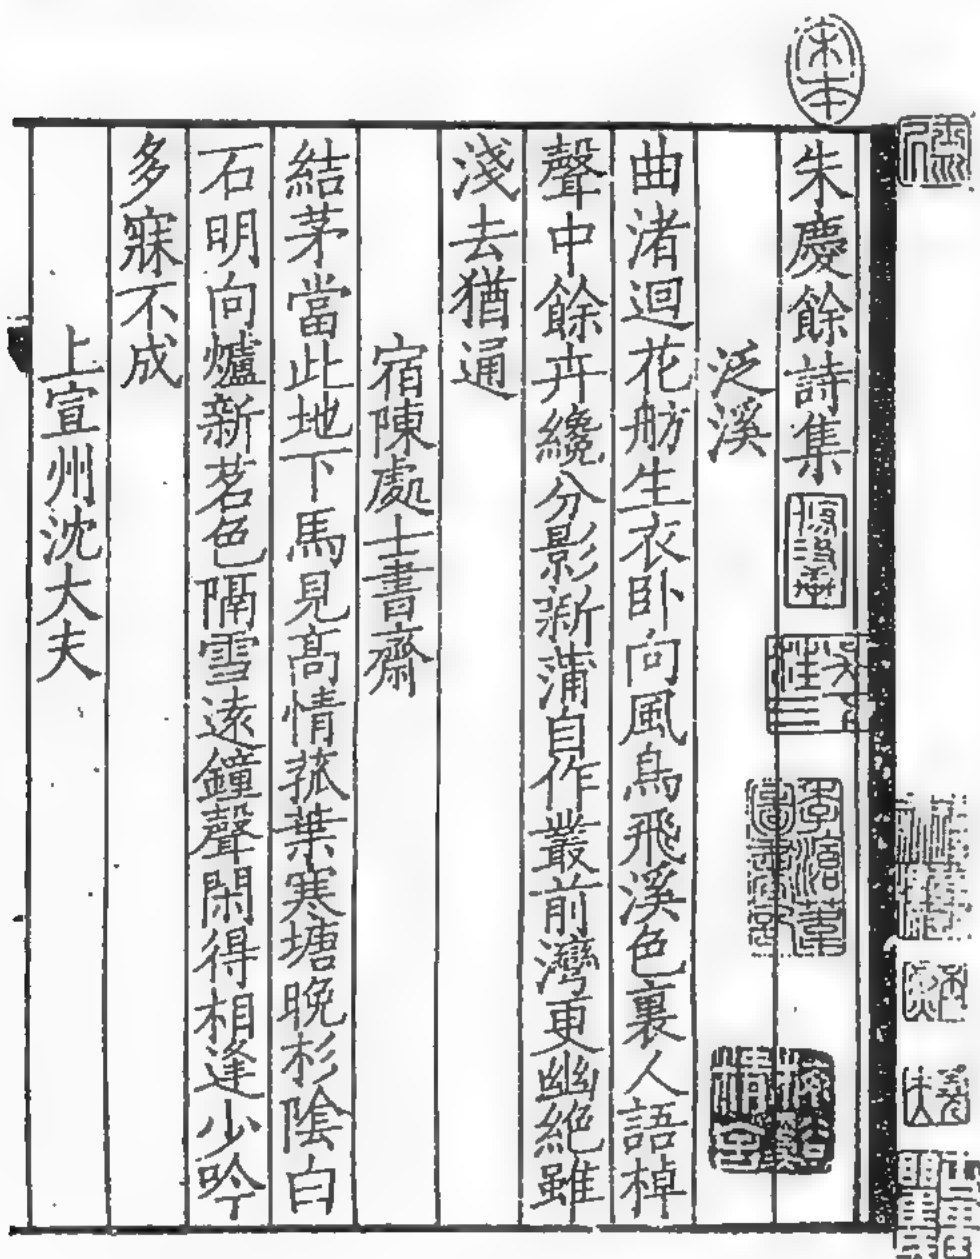 朱慶餘詩集
泛溪
曲渚迴花舫生衣卧向風鳥飛溪色裏人語棹
聲中餘卉纔分影新蒲自作叢前灣更幽絕雖
淺去猶通
宿陳處士書齋
結茅當此地下馬見髙情菰葉寒塘晚杉陰白
石明向爐新茗色隔雪遠鐘聲閑得相逢少吟
多寐不成
上宣州沈大夫
宋本